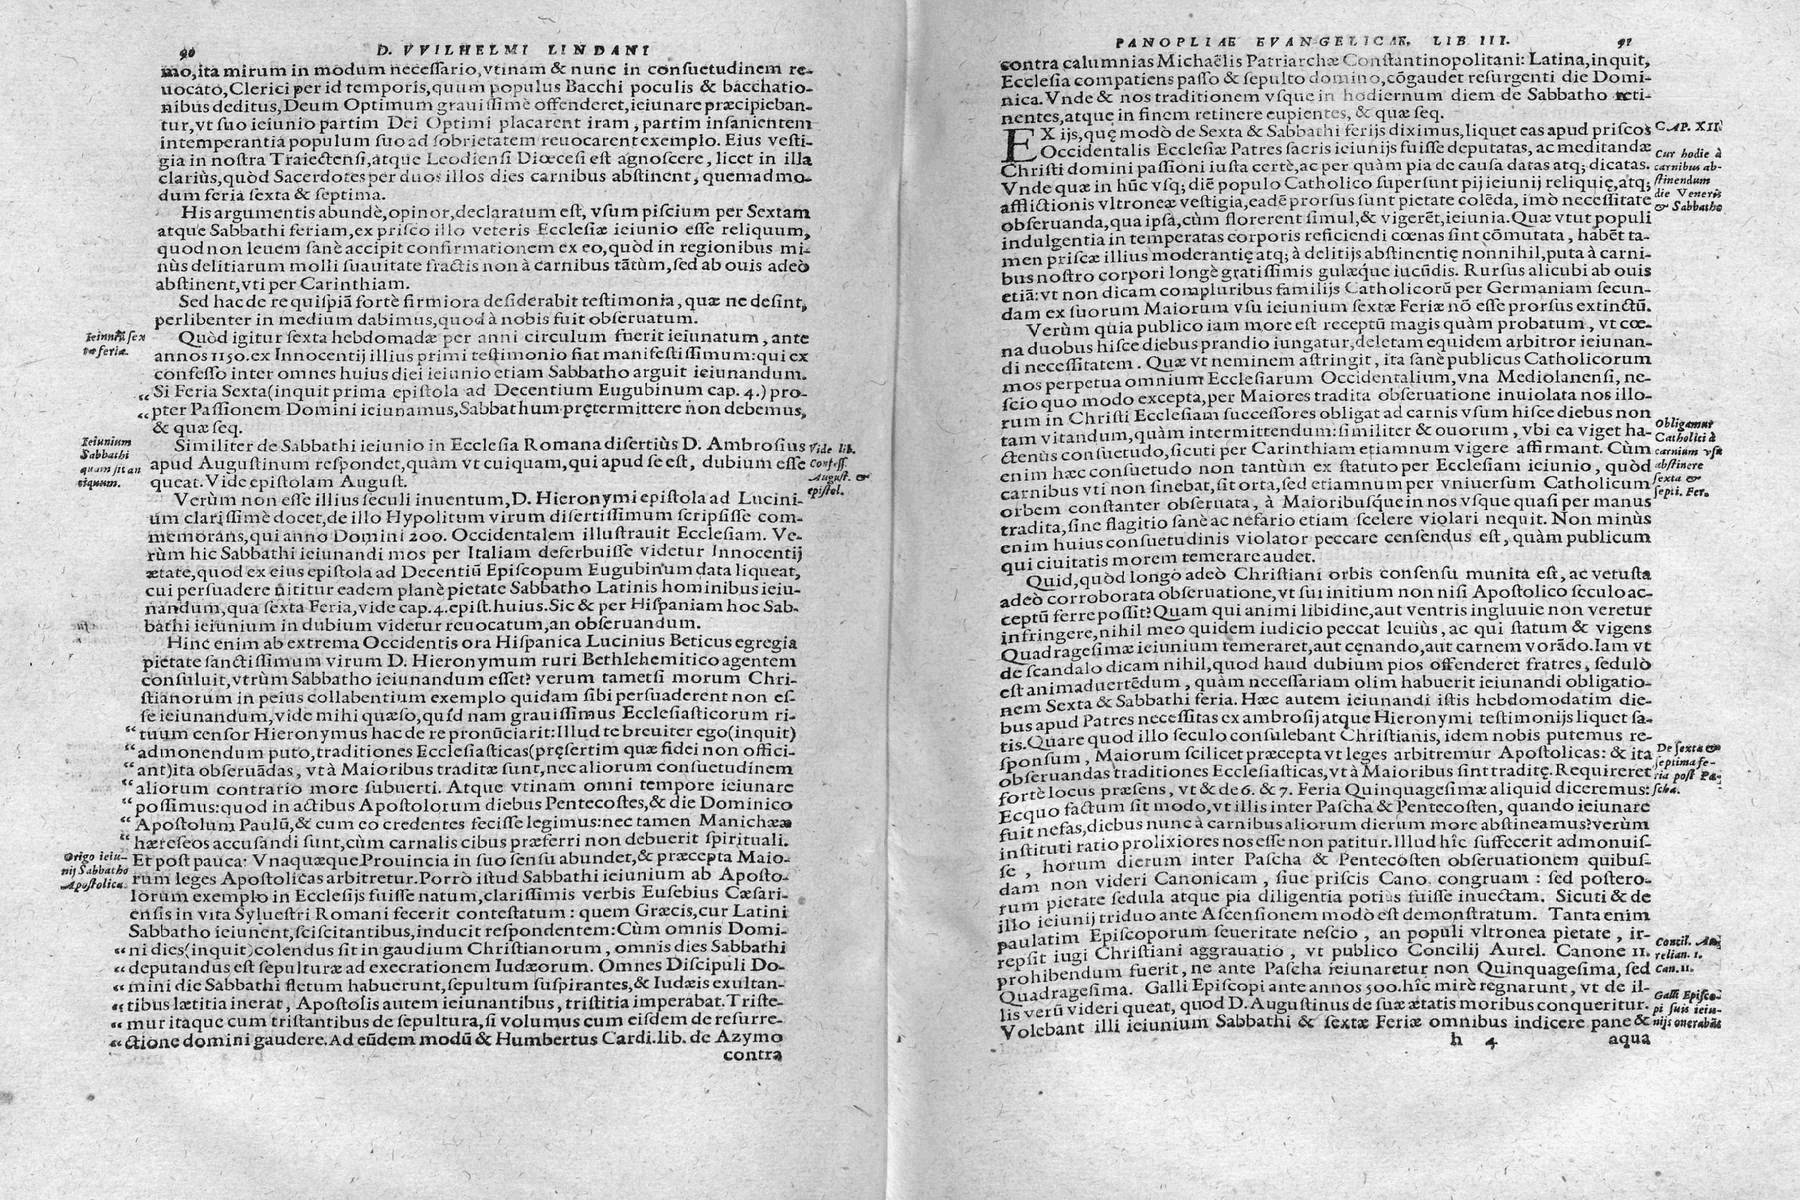 90
D. VVILHELMI LINDANI
mo,ita mirum in modum necessario,vtinam & nunc in consuetudinem re-
uocato,Clerici per id temporis,quum populus Bacchi poculis & bacchatio-
nibus deditus,Deum Optimum grauissimè offenderet,ieiunare præcipieban-
tur,vt suo ieiunio partim Dei Optimi placarent iram, partim insanientem
intemperantiā populum suo ad sobrietatem reuocarent exemplo. Eius vesti-
gia in nostra Traiectensi,atque Leodiensi Diœcesi est agnoscere, licet in illa
clariùs,quòd Sacerdotes per duos illos dies carnibus abstinent, quemadmo-
dum feria sexta & septima.
His argumentis abundè,opinor,declaratum est, vsum piscium per Sextam
atque Sabbathi feriam,ex prisco illo veteris Ecclesiæ ieiunio esse reliquum,
quod non leuem sanè accipit confirmationem ex eo,quòd in regionibus mi-
nùs delitiarum molli suauitate fractis non à carnibus tātùm,sed ab ouis adeò
abstinent,vti per Carinthiam.
Sed hac de re quispiā fortè firmiora desiderabit testimonia, quæ ne desint,
perlibenter in medium dabimus,quod à nobis fuit obseruatum.
Ieiuniū sex
tæ feriæ.
Quòd igitur sexta hebdomadæ per anni circulum fuerit ieiunatum, ante
annos 1150.ex Innocentij illius primi testimonio fiat manifestissimum:qui ex
confesso inter omnes huius diei ieiunio etiam Sabbatho arguit ieiunandum.
“ Si Feria Sexta(inquit prima epistola ad Decentium Eugubinum cap. 4.) pro-
“ pter Passionem Domini ieiunamus,Sabbathum prętermittere non debemus,
& quæ seq.
Ieiunium
Sabbathi
quam sit an
tiquum.
Similiter de Sabbathi ieiunio in Ecclesia Romana disertiùs D. Ambrosius
apud Augustinum respondet,quàm vt cuiquam,qui apud se est, dubium esse
queat. Vide epistolam August.
Vide lib.
Confess.
August. &
epistol.
Verùm non esse illius seculi inuentum,D. Hieronymi epistola ad Lucini-
um clarissimè docet,de illo Hypolitum virum disertissimum scripsisse com-
memorans,qui anno Domini 200. Occidentalem illustrauit Ecclesiam. Ve-
rùm hic Sabbathi ieiunandi mos per Italiam deferbuisse videtur Innocentij
ætate,quod ex eius epistola ad Decentiū Episcopum Eugubinum data liqueat,
cui persuadere nititur eadem planè pietate Sabbatho Latinis hominibus ieiu-
nandum,qua sexta Feria,vide cap.4.epist.huius.Sic & per Hispaniam hoc Sab-
bathi ieiunium in dubium videtur reuocatum,an obseruandum.
Hinc enim ab extrema Occidentis ora Hispanica Lucinius Beticus egregia
pietate sanctissimum virum D. Hieronymum ruri Bethlehemitico agentem
consuluit,vtrùm Sabbatho ieiunandum esset? verum tametsi morum Chri-
stianorum in peius collabentium exemplo quidam sibi persuaderent non es-
se ieiunandum,vide mihi quæso,quid nam grauissimus Ecclesiasticorum ri-
“ tuum censor Hieronymus hac de re pronūciarit:Illud te breuiter ego(inquit)
“ admonendum puto,traditiones Ecclesiasticas(pręsertim quæ fidei non offici-
“ ant)ita obseruādas, vt à Maioribus traditæ sunt,nec aliorum consuetudinem
“ aliorum contrario more subuerti. Atque vtinam omni tempore ieiunare
“ possimus:quod in actibus Apostolorum diebus Pentecostes,& die Dominico
“ Apostolum Paulū,& cum eo credentes fecisse legimus:nec tamen Manichææ
“ hæreseos accusandi sunt,cùm carnalis cibus præferri non debuerit spirituali.
Origo ieiu-
nij Sabbatho
Apostolica.
Et post pauca: Vnaquæque Prouincia in suo sensu abundet,& præcepta Maio-
rum leges Apostolicas arbitretur.Porrò istud Sabbathi ieiunium ab Aposto-
lorum exemplo in Ecclesijs fuisse natum,clarissimis verbis Eusebius Cæsari-
ensis in vita Syluestri Romani fecerit contestatum : quem Græcis,cur Latini
Sabbatho ieiunent,sciscitantibus,inducit respondentem:Cùm omnis Domi-
“ ni dies(inquit)colendus sit in gaudium Christianorum, omnis dies Sabbathi
“ deputandus est sepulturæ ad execrationem Iudæorum. Omnes Discipuli Do-
“ mini die Sabbathi fletum habuerunt,sepultum suspirantes,& Iudæis exultan-
“ tibus lætitia inerat, Apostolis autem ieiunantibus, tristitia imperabat.Triste-
“ mur itaque cum tristantibus de sepultura,si volumus cum eisdem de resurre-
“ ctione domini gaudere.Ad eūdem modū & Humbertus Cardi.lib. de Azymo
contra
PANOPLIAE EVANGELICAE. LIB III.
91
contra calumnias Michaëlis Patriarchæ Constantinopolitani: Latina,inquit,
Ecclesia compatiens passo & sepulto domino,cōgaudet resurgenti die Domi-
nica.Vnde & nos traditionem vsque in hodiernum diem de Sabbatho reti-
nentes,atque in finem retinere cupientes, & quæ seq.
CAP. XII.
EX ijs,quę modò de Sexta & Sabbathi ferijs diximus,liquet eas apud priscos
Occidentalis Ecclesiæ Patres sacris ieiunijs fuisse deputatas, ac meditandæ
Christi domini passioni iusta certè,ac per quàm pia de causa datas atq; dicatas.
Vnde quæ in hūc vsq; diē populo Catholico supersunt pij ieiunij reliquię,atq;
afflictionis vltroneæ vestigia,eadē prorsus sunt pietate colēda, imò necessitate
obseruanda,qua ipsa,cùm florerent simul,& vigerēt,ieiunia.Quæ vtut populi
indulgentia in temperatas corporis reficiendi cœnas sint cōmutata, habēt ta-
men priscæ illius moderantię atq; à delitijs abstinentię nonnihil,puta à carni-
bus nostro corpori longè gratissimis gulæque iucūdis. Rursus alicubi ab ouis
etiā: vt non dicam compluribus familijs Catholicorū per Germaniam secun-
dam ex suorum Maiorum vsu ieiunium sextæ Feriæ nō esse prorsus extinctū.
Cur hodie à
carnibus ab-
stinendum
die Veneris
& Sabbatho
Verùm quia publico iam more est receptū magis quàm probatum, vt cœ-
na duobus hisce diebus prandio iungatur,deletam equidem arbitror ieiunan-
di necessitatem. Quæ vt neminem astringit, ita sanè publicus Catholicorum
mos perpetua omnium Ecclesiarum Occidentalium,vna Mediolanensi, ne-
scio quo modo excepta,per Maiores tradita obseruatione inuiolata nos illo-
rum in Christi Ecclesiam successores obligat ad carnis vsum hisce diebus non
tam vitandum,quàm intermittendum:similiter & ouorum, vbi ea viget ha-
ctenùs consuetudo,sicuti per Carinthiam etiamnum vigere affirmant. Cùm
enim hæc consuetudo non tantùm ex statuto per Ecclesiam ieiunio, quòd
carnibus vti non sinebat,sit orta,sed etiamnum per vniuersum Catholicum
orbem constanter obseruata, à Maioribusq́ue in nos vsque quasi per manus
tradita,sine flagitio sanè ac nefario etiam scelere violari nequit. Non minùs
enim huius consuetudinis violator peccare censendus est, quàm publicum
qui ciuitatis morem temerare audet.
Obligamur
Catholici à
carnium vsu
abstinere
sexta &
septi. Fer.
Quid,quòd longo adeò Christiani orbis consensu munita est, ac vetusta
adeò corroborata obseruatione,vt sui initium non nisi Apostolico seculo ac-
ceptū ferre possit? Quam qui animi libidine,aut ventris ingluuie non veretur
infringere,nihil meo quidem iudicio peccat leuiùs, ac qui statum & vigens
Quadragesimæ ieiunium temeraret,aut cęnando,aut carnem vorādo.Iam vt
de scandalo dicam nihil,quod haud dubium pios offenderet fratres, sedulò
est animaduertēdum, quàm necessariam olim habuerit ieiunandi obligatio-
nem Sexta & Sabbathi feria. Hæc autem ieiunandi istis hebdomadatim die-
bus apud Patres necessitas ex ambrosij atque Hieronymi testimonijs liquet sa-
tis.Quare quod illo seculo consulebant Christianis, idem nobis putemus re-
sponsum, Maiorum scilicet præcepta vt leges arbitremur Apostolicas: & ita
obseruandas traditiones Ecclesiasticas,vt à Maioribus sint traditę. Requireret
fortè locus præsens, vt & de 6. & 7. Feria Quinquagesimæ aliquid diceremus:
Ecquo factum sit modo,vt illis inter Pascha & Pentecosten, quando ieiunare
fuit nefas,diebus nunc à carnibus aliorum dierum more abstineamus?verùm
instituti ratio prolixiores nos esse non patitur.Illud hîc suffecerit admonuis-
se, horum dierum inter Pascha & Pentecosten obseruationem quibus-
dam non videri Canonicam, siue priscis Cano. congruam : sed postero-
rum pietate sedula atque pia diligentia potius fuisse inuectam. Sicuti & de
illo ieiunij triduo ante Ascensionem modò est demonstratum. Tanta enim
paulatim Episcoporum seueritate nescio, an populi vltronea pietate, ir-
repsit iugi Christiani aggrauatio, vt publico Concilij Aurel. Canone 11.
prohibendum fuerit, ne ante Pascha ieiunaretur non Quinquagesima, sed
Quadragesima. Galli Episcopi ante annos 500.hîc mirè regnarunt, vt de il-
lis verū videri queat, quod D. Augustinus de suæ ætatis moribus conqueritur.
Volebant illi ieiunium Sabbathi & sextæ Feriæ omnibus indicere pane &
De sexta &
septima fe-
ria post Pa-
scha.
Concil. Au
relian. 1.
Can.11.
Galli Episco-
pi suis ieiu-
nijs onerabāt
h 4
aqua